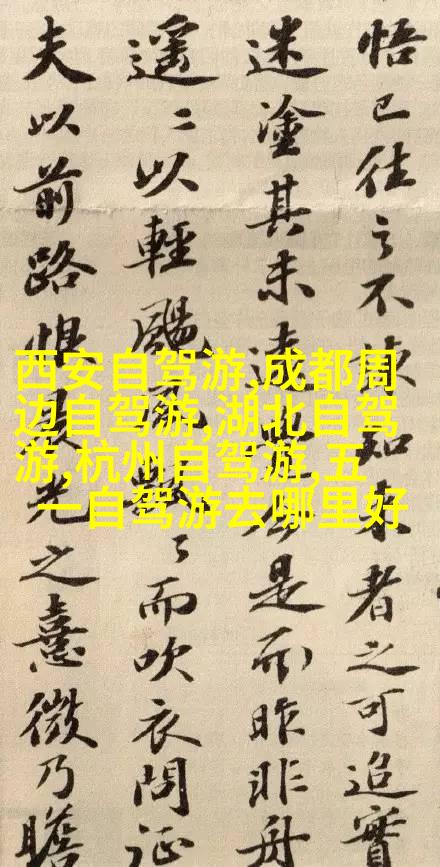 西安自驾游,成都周
边自驾游,湖北自驾
游,杭州自驾游,五
一自驾游去哪里好
悟已往之不諫知来者之可追實
迷塗其未遠是而昨非舟
遥〻以輕颺風飄〻而吹衣問征
夫以前路恨晨光之熹微乃瞻